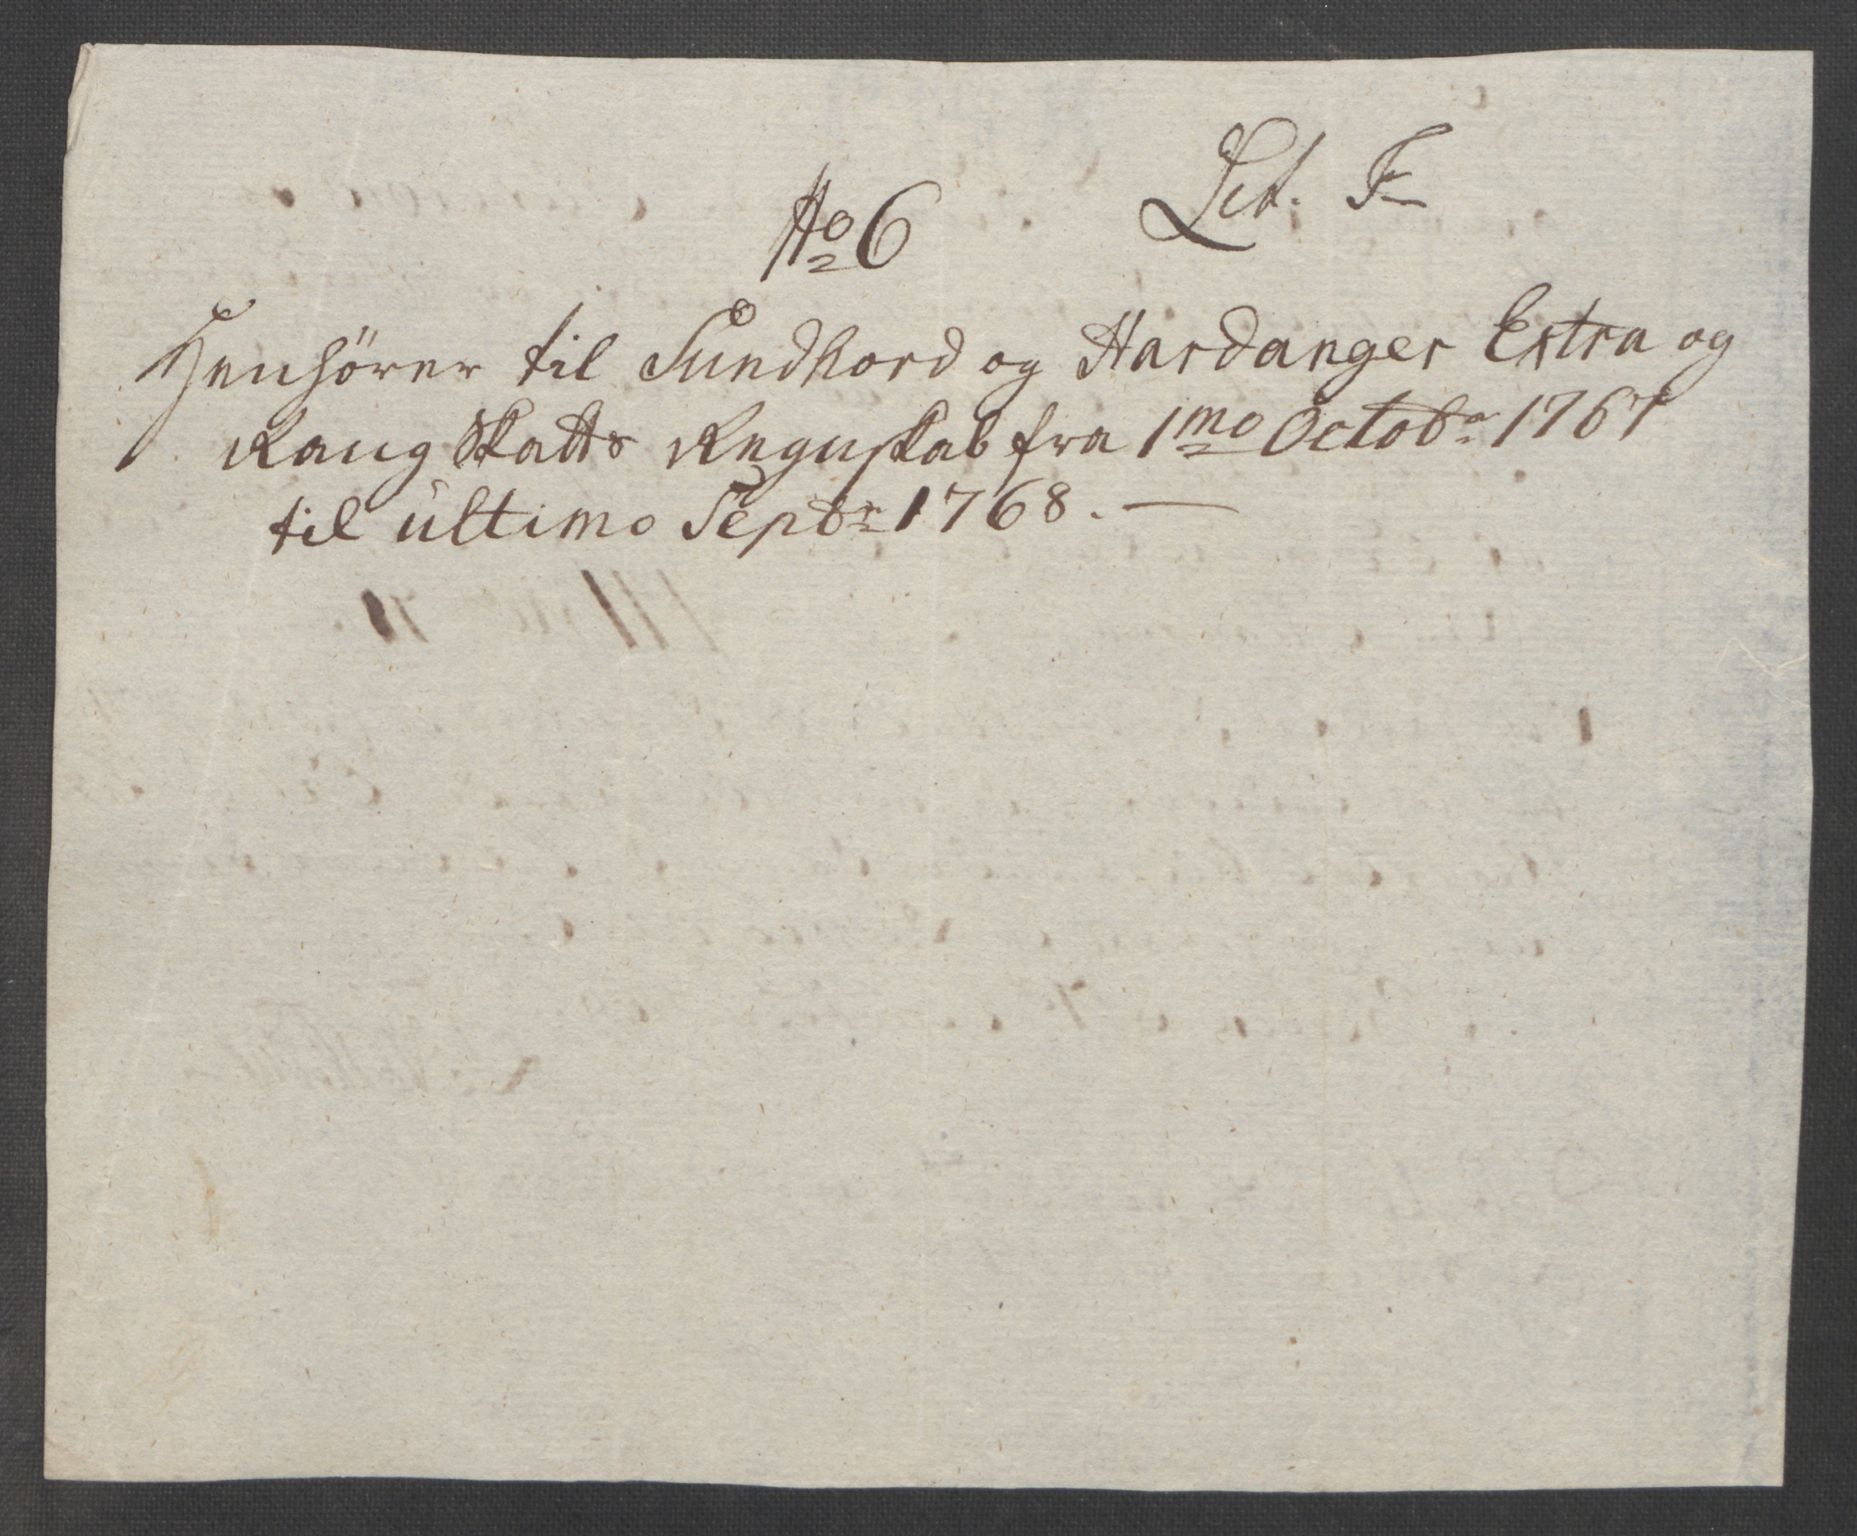 Lit. F
No 6
Henhörer til Sundhord og Hardanger Extra og
Rang Skatts Regnskab fra 1mo Octobr 1767
til ultimo Septbr 1768. —